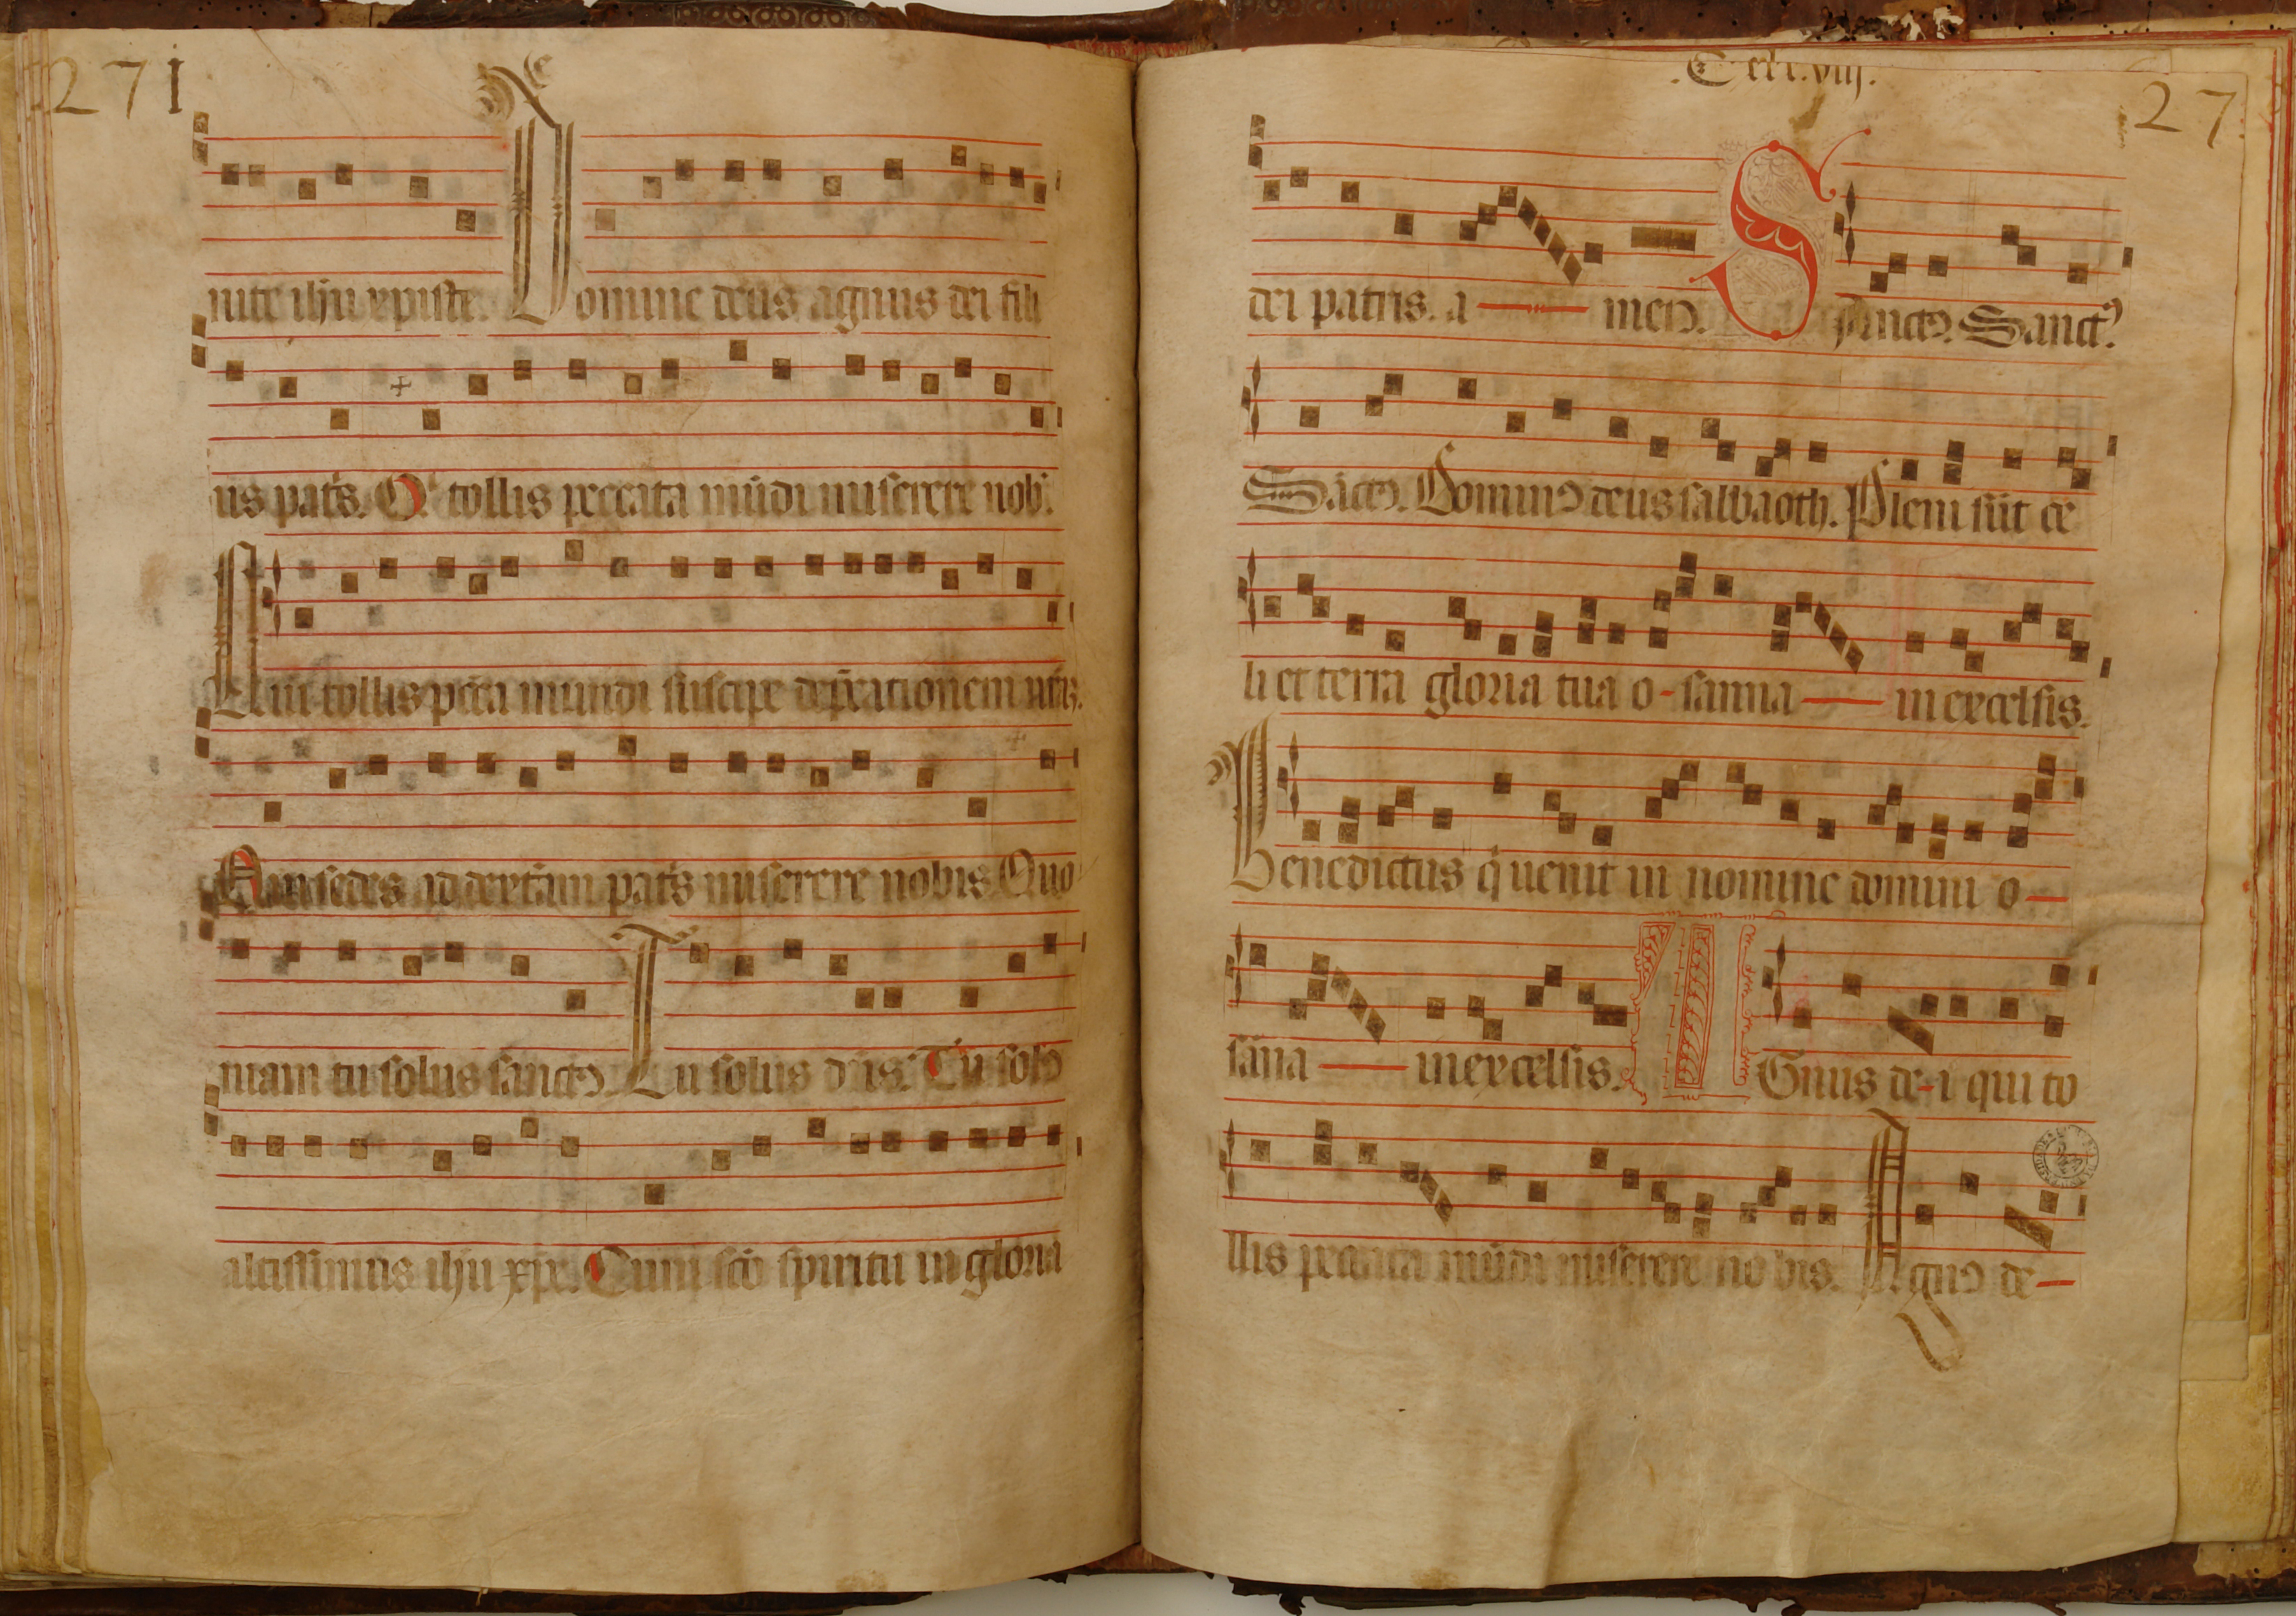 271
nite ihu xpiste. Domine deus agnus dei fili
us pat's. Q' tollis peccata mūdi miserere nob'.
Qui tollis pcca mundi suscipe dep̄cationem nr̄az.
Qui sedes ad dexterā pat's miserere nobis Quo
niam tu solus sanctꝰ. Tu solus dn̄s. Tu solꝰ
altissimus ihu xpe. Cum scō spiritu in gloria
27
dei patris. a men. Sanctꝰ. Sanctꝰ.
Sāctꝰ. Dominꝰ deus sabbaoth. Pleni sūt ce
li et terra gloria tua o-sanna in excelsis.
Benedictus q̇ uenit in nomine domini o
sāna in excelsis. AGnus de-i qui to
llis peccata mūdi miserere no bis. Agnꝰ de